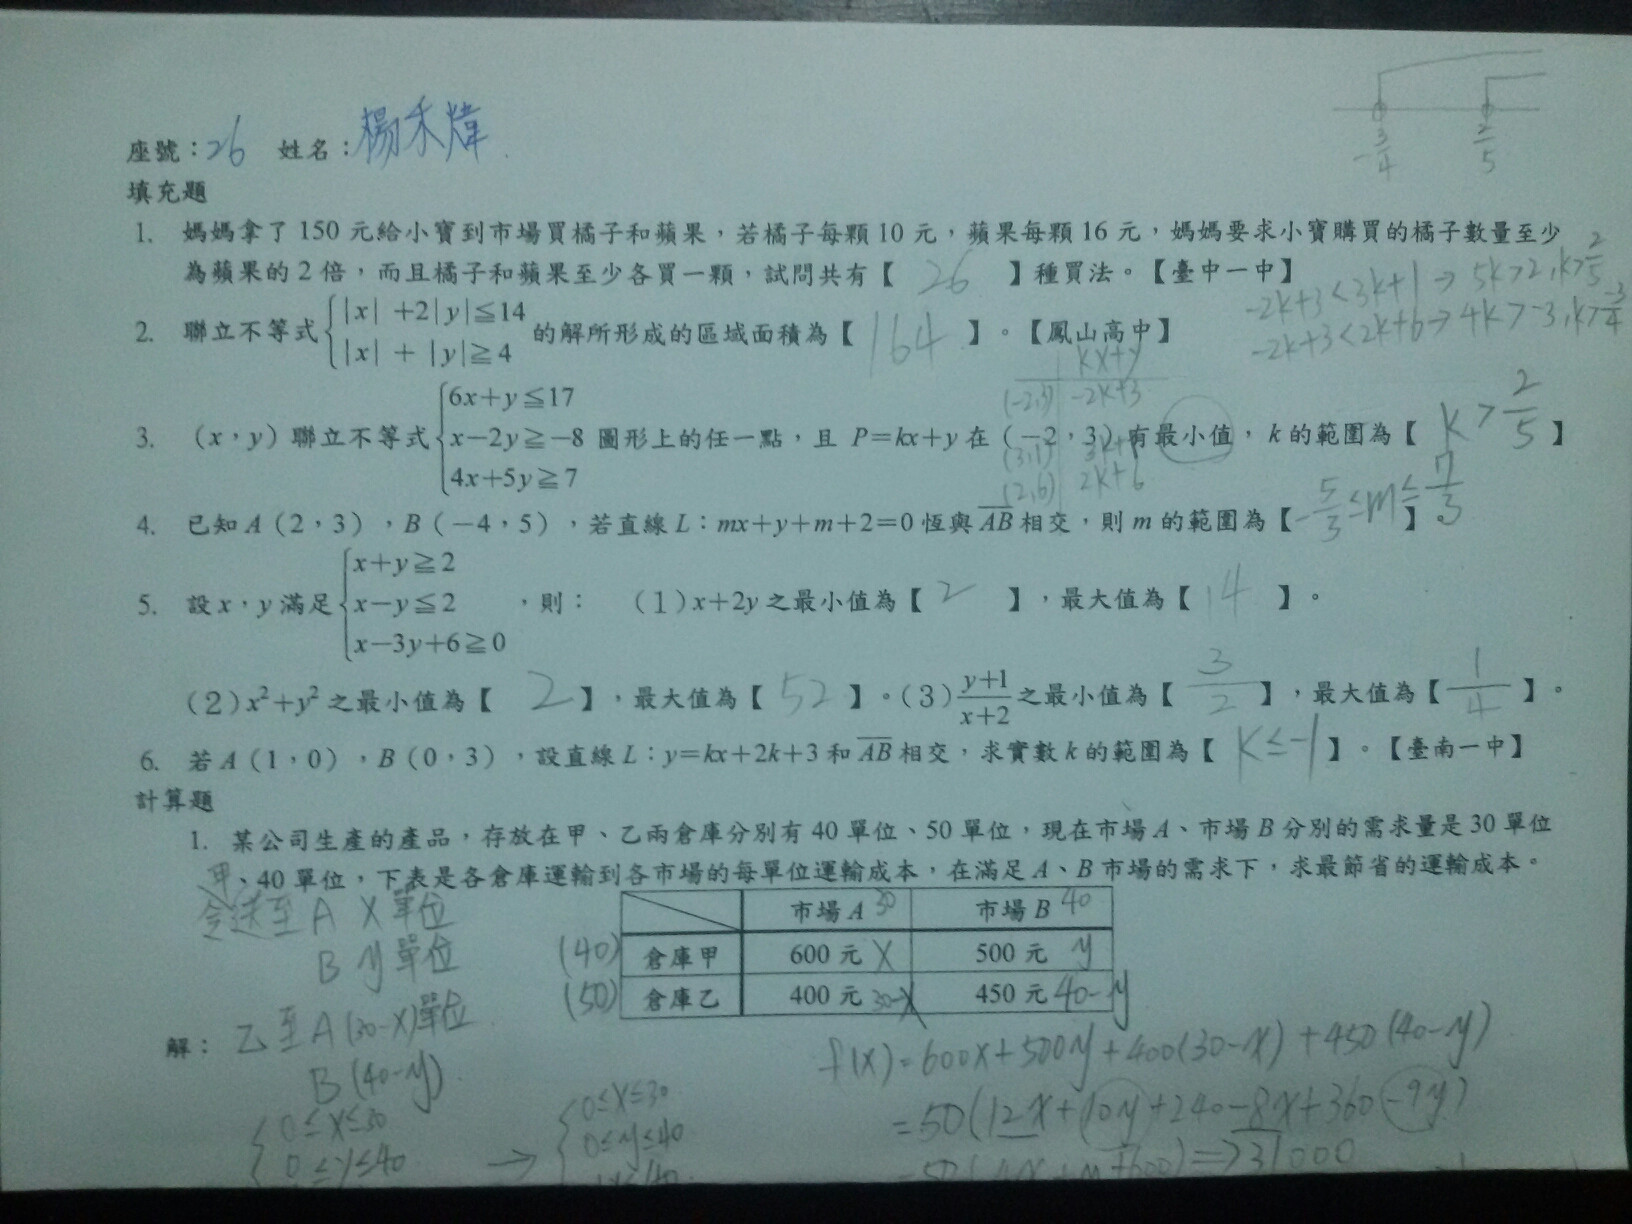 座號：26 姓名：楊禾煒
填充題
1. 媽媽拿了 150 元給小寶到市場買橘子和蘋果，若橘子每顆 10 元，蘋果每顆 16 元，媽媽要求小寶購買的橘子數量至少
為蘋果的 2 倍，而且橘子和蘋果至少各買一顆，試問共有【 26 】種買法。【臺中一中】
-3/4 2/5
-2k+3<3k+1→5k>2,k>2/5
-2k+3<2k+6→4k>-3,k>-3/4
2. 聯立不等式{|x|+2|y|≦14
|x|+|y|≧4 的解所形成的區域面積為【 164 】。【鳳山高中】
kx+y
(-2,3) -2k+3
(3,1) 3k+1
(2,6) 2k+6
3. （x，y）聯立不等式{6x+y≦17
x−2y≧−8
4x+5y≧7 圖形上的任一點，且 P=kx+y 在（−2，3）有最小值，k 的範圍為【 k>2/5 】
4. 已知 A（2，3），B（−4，5），若直線 L：mx+y+m+2=0 恆與 AB 相交，則 m 的範圍為【 -5/3≤m≤7/3 】。
5. 設 x，y 滿足{x+y≧2
x−y≦2
x−3y+6≧0 ，則： （1）x+2y 之最小值為【 2 】，最大值為【 14 】。
（2）x²+y² 之最小值為【 2 】，最大值為【 52 】。（3）y+1/x+2 之最小值為【 3/2 】，最大值為【 1/4 】。
6. 若 A（1，0），B（0，3），設直線 L：y=kx+2k+3 和 AB 相交，求實數 k 的範圍為【 K≤-1 】。【臺南一中】
計算題
1. 某公司生產的產品，存放在甲、乙兩倉庫分別有 40 單位、50 單位，現在市場 A、市場 B 分別的需求量是 30 單位
、40 單位，下表是各倉庫運輸到各市場的每單位運輸成本，在滿足 A、B 市場的需求下，求最節省的運輸成本。
市場 A 30 市場 B 40
(40) 倉庫甲 600 元 X 500 元 y
(50) 倉庫乙 400 元 30-X 450 元 40-y
甲
令送至 A X 單位
B y 單位
解： 乙至 A (30-X)單位
B (40-y)
{0≤X≤30
0≤y≤40
→ {0≤X≤30
0≤y≤40
f(X)=600X+500y+400(30-X)+450(40-y)
=50(12X+10y+240-8X+360-9y)
=50(4X+y+600)=>31000